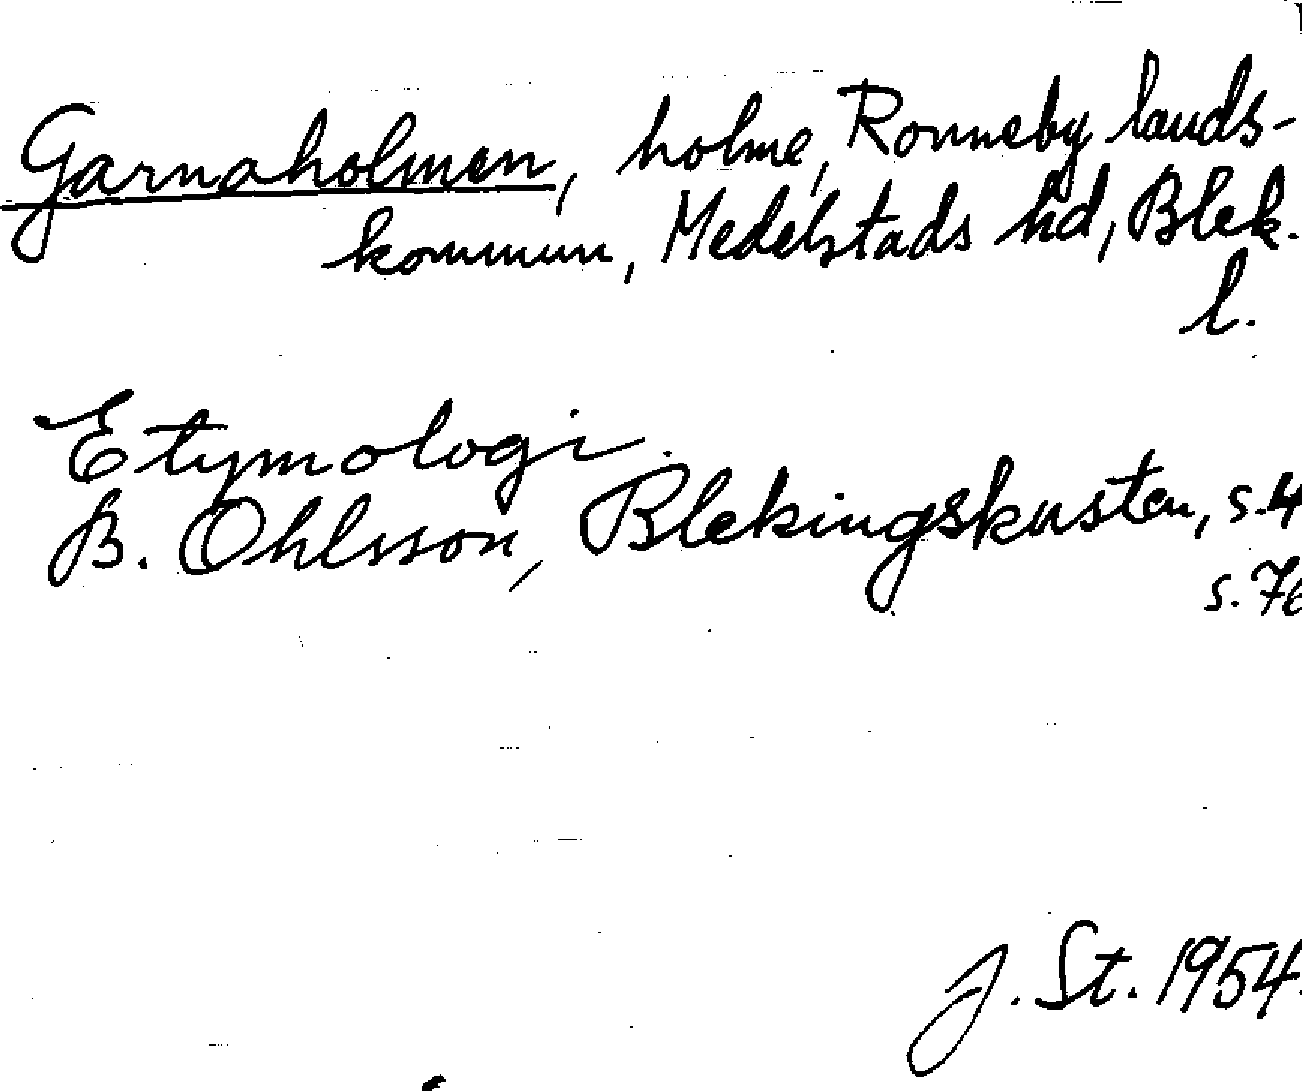 Garnaholmen, holme, Ronneby lands-
kommun, Medelstads hd, Blek.
l.
Etymologi.
B. Ohlsson, Blekingskusten, s. 4
s. 76
J. St. 1954.